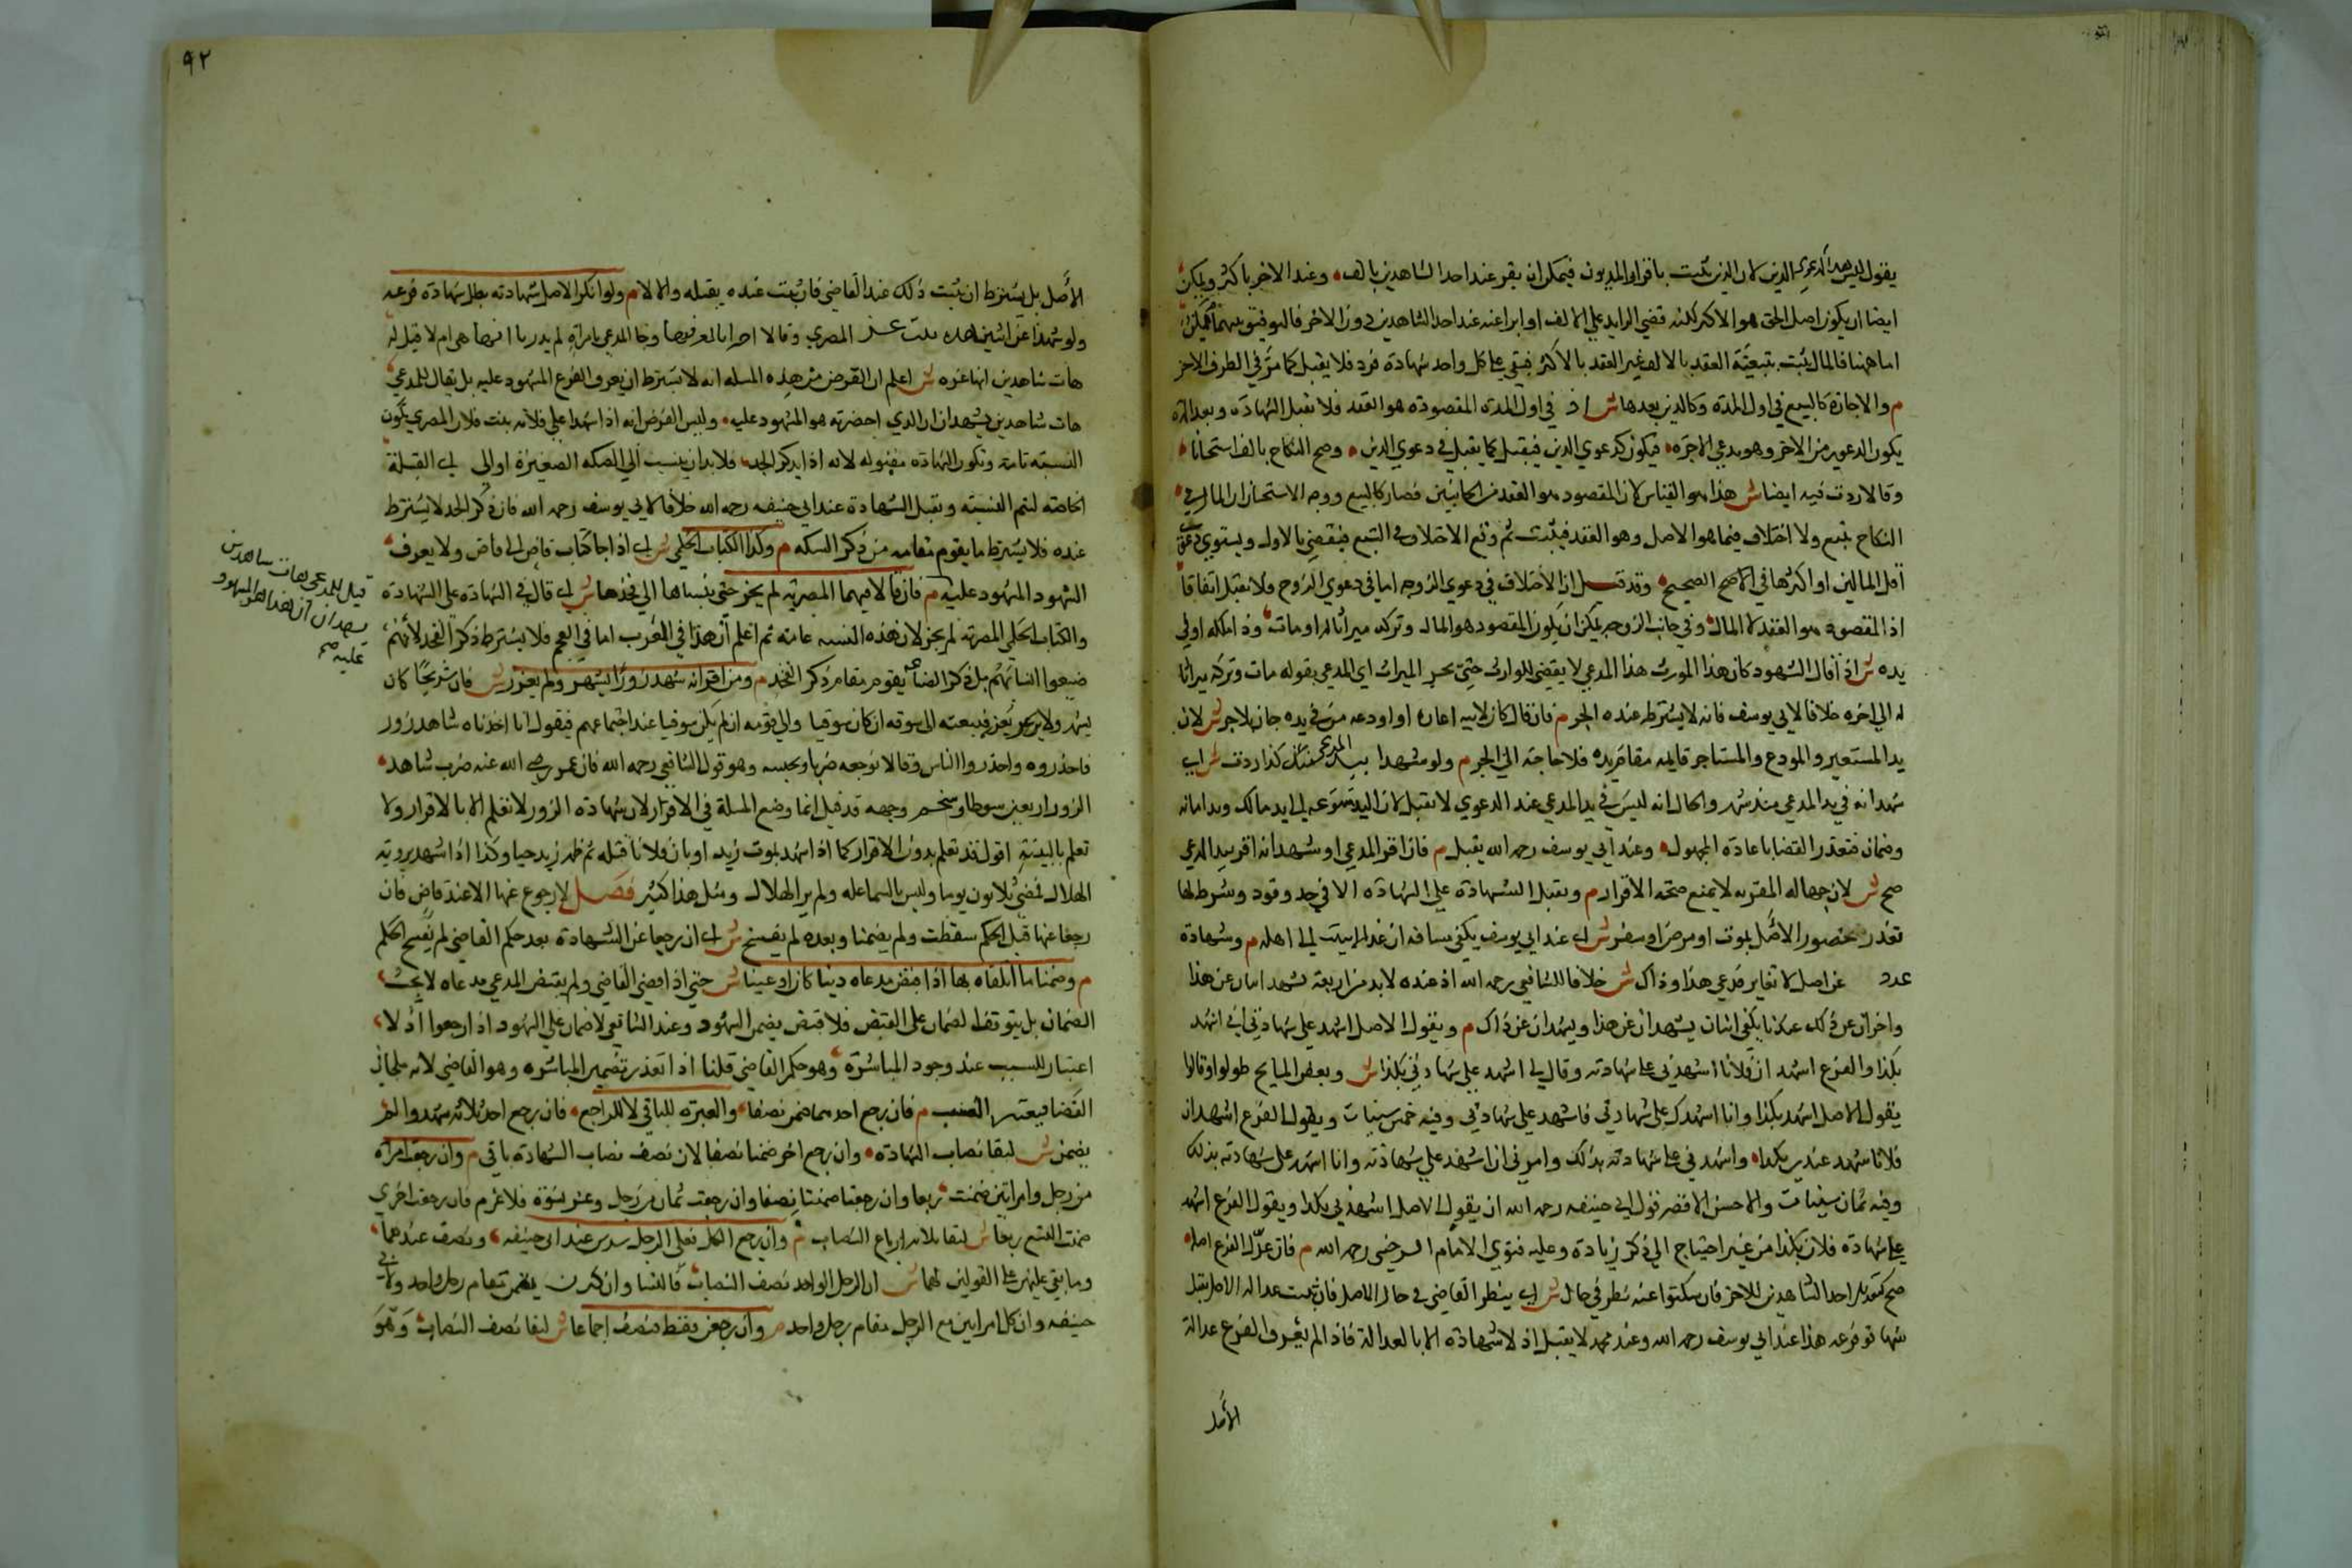 يقول ليس هذا كدعوى الدين لان الدين يثبت باقرار المديون فيمكن ان يقر عند احد الشاهدين بالف وعند الاخر باكثر ويمكن
ايضا ان يكون اصل الحق هو الاكثر لكنه قضى الزايد على الالف او ابرا عنه عند احد الشاهدين دون الاخر فالتوفيق بينهما ممكن
اما ههنا فالمال يثبت بتبعية العقد بالالف غير العقد بالاكثر فبقي على كل واحد شهادة فرد فلا يقبل كما مر في الطرف الاخر
م والاجارة كالبيع في اول المدة وكالدين بعدها ش اذ في اول المدة المقصودة هو العقد فلا تقبل الشهادة وبعد المدة
يكون الدعوى من الاخر وهو يدعي الاجرة فيكون كدعوى الدين فيقبل كما يقبل في دعوى الدين وصح النكاح بالف استحسانا
وقالا ردت فيه ايضا ش هذا هو القياس لان المقصود هو العقد من الجانبين فصار كالبيع ووجه الاستحسان ان المال في
النكاح تبع ولا اختلاف فيما هو الاصل وهو العقد فيثبت ثم وقع الاختلاف في التبع فيقضي بالاول ويستوي دعوى
اقل المالين او اكثرهما في الاصح الصحيح وقد قيل ان الاختلاف في دعوى الزوجه اما في دعوى الزوج ولا تقبل اتفاقا
اذ المقصود هو العقد لا المال وفي جانب الزوجه يمكن ان يكون المقصود هو المال وتركه ميراثا له او مات وذا ملكه او في
يده ش اذا قال الشهود كان هذا المورث هذا المدعي لا يقضى للوارث حتى يجر الميراث اي المدعي بقوله مات وتركه ميراثا
له الى اخره خلافا لابي يوسف فانه لا يشترط عنده الجر م فان قال كان لابيه اعاره او اودعه من في يده جاز بلا جر ش لان
يد المستعير والمودع والمستاجر قايمه مقام يده فلا حاجة الى الجر م ولو شهدا بيد المدعي منذ كذا ردت ش اي
شهد انه في يد المدعي منذ شهر والحال انه ليس في يد المدعي عند الدعوى لا تقبل لان اليد متنوعه الى يد مالك ويد امانه
وضمان فتعذر القضا باعادة المجهول وعند ابي يوسف رحمه الله يقبل م فان اقر المدعي او شهدا انه اقر بيد المدعي
صح ش لان جهالة المقر به لا يمنع صحة الاقرار م وتقبل الشهادة على الشهادة الا في حد وقود وشرط لها
تعذر حضور الاصل بموت او مرض او سفر ش اي عند ابي يوسف يكفي مسافة ان غدا لا يبيت الى اهله م وشهادة
عدد عن اصل لا تغاير فرعي هذا وذاك ش خلافا للشافعي رحمه الله اذ عنده لا بد من اربعة يشهد اثنان عن هذا
واخران عن ذلك عندنا يكفي اثنان يشهدان عن هذا ويشهدان عن ذاك م ويقول الاصل اشهد على شهادتي اني اشهد
بكذا والفرع اشهد ان فلانا اشهدني على شهادته وقال لي اشهد على شهادتي بكذا ش وبعض المشايخ طولوا وقالوا
يقول الاصل اشهد بكذا وانا اشهدك على شهادتي فاشهد على شهادتي وفيه خمس شينات ويقول الفرع اشهد ان
فلانا شهد عندي بكذا واشهدني على شهادته بذلك وامرني ان اشهد على شهادته وانا اشهد على شهادته بذلك
وفيه ثمان شينات والاحسن الاقصر قول ابي حنيفه رحمه الله ان يقول الاصل اشهدني بكذا ويقول الفرع اشهد
على شهادة فلان بكذا من غير احتياج الى ذكر زيادة وعليه فتوى الامام السرخسي رحمه الله م فان عدل الفرع اصله
صح كتعديل احد الشاهدين للاخر فان سكتوا عنه نظر في حاله ش اي ينظر القاضي في حال الاصل فان ثبت عدالة الاصل تقبل
شهادة فرعه هذا عند ابي يوسف رحمه الله وعند محمد لا يقبل اذ لا شهادة الا بالعدالة فاذا لم يعرف الفرع عدالة
الاصل
٩٢
الاصل بل يشترط ان يثبت ذلك عند القاضي فان ثبت عنده يقبله والا لا م ولو انكر الاصل شهادته بطل شهادة فرعه
ولو شهدا عن اثنين هذه بنت المصري وقالا اخبرانا بمعرفتها وجا المدعي بامراة لم يدريا انها هي ام لا قيل له
هات شاهدين انها عزه ش اعلم ان الغرض من هذه المسله انه لا يشترط ان يعرف الفرع المشهود عليه بل يقال للمدعي
هات شاهدين يشهدان ان الذي احضرته هو المشهود عليه وليس الغرض انه اذا شهدا على فلانه بنت فلان المصري يكون
النسبة تامة وتكون الشهادة مقبوله لانه اذا لم يذكر الجد فلا بد ان ينسب الى السكه الصغيرة او الى القبيلة
الخاصه لتتم النسبة وتقبل الشهادة عند ابي حنيفه رحمه الله خلافا لابي يوسف رحمه الله فان ذكر الجد لا يشترط
عنده فلا يشترط ما يقوم مقامه من ذكر السكه م وكذا الكتاب الحكمي ش اي اذا جا كتاب قاض الى قاض ولا يعرف
الشهود المشهود عليه م فان قالا فيهما المصريه لم يجز حتى ينسباها الى فخذها ش اي قال في الشهادة على الشهادة
والكتاب الحكمي المصريه لم يجز لان هذه النسبه عامه ثم اعلم ان هذا في العرب اما في العجم فلا يشترط ذكر الفخذ لانهم
ضيعوا انسابهم بل ذكر الصناعة يقوم مقام ذكر الفخذ م ومن اقر انه شهد زورا يشهر ولم يعزر ش فان شريحا كان
يشهر ولا يعزر فيبعثه الى سوقه ان كان سوقيا والى قومه ان لم يكن سوقيا عند اجتماعهم فيقول انا اخذناه شاهد زور
فاحذروه واحذروا الناس وقالا نوجعه ضربا ونحبسه وهو قول الشافعي رحمه الله فان عمر رضي الله عنه ضرب شاهد
الزور اربعين سوطا وسخم وجهه قد قيل انما وضع المسلة في الاقرار لان شهادة الزور لا تعلم الا بالاقرار ولا
تعلم بالبينة اقول قد تعلم بدون الاقرار كما اذا شهد بموت زيد او بان فلانا قتله ثم ظهر زيد حيا وكذا اذا شهد بروية
الهلال فمضى ثلاثون يوما وليس بالسما علة ولم ير الهلال ومثل هذا كثير فصل لا رجوع عنها الا عند قاض فان
رجعا عنها قبل الحكم سقطت ولم يضمنا وبعده لم يفسخ ش اي ان رجعا عن الشهادة بعد حكم القاضي لم يفسخ الحكم
م وضمنا ما اتلفاه بها اذا قبض مدعاه دينا كان او عينا ش حتى اذا قضى القاضي ولم يقبض المدعي مدعاه لا يجب
الضمان بل يتوقف الضمان على القبض فلا قبض يضمن الشهود وعند الشافعي لا ضمان على الشهود اذا رجعوا اذ لا
اعتبار للسبب عند وجود المباشرة وهو حكم القاضي قلنا اذا تعذر تضمين المباشره وهو القاضي لانه ملجا في
القضا فيعتبر السبب م فان رجع احدهما ضمن نصفا والعبرة للباقي لا للراجع فان رجع احد ثلاثه شهدوا لم
يضمن ش لبقا نصاب الشهادة وان رجع اخر ضمنا نصفا لان نصف نصاب الشهادة باقي م وان رجعت امراة
من رجل وامراتين ضمنت ربعا وان رجعتا ضمنتا نصفا وان رجعت ثمان من رجل وعشر نسوة فلا غرم فان رجعت اخرى
ضمنت التسع ربعا ش لبقا ثلاثة ارباع النصاب م وان رجع الكل فعلى الرجل سدس عند ابي حنيفه ونصف عندهما
وما بقي عليهن على القولين لهما ش ان الرجل الواحد نصف النصاب فالنسا وان كثرن يقمن مقام رجل واحد ولابي
حنيفه وان كل امراتين مع الرجل مقام رجل واحد م وان رجعن فقط فنصف اجماعا ش لبقا نصف النصاب وهو
قيل للمدعي هات شاهدين
يشهدان ان هذا هو المشهود
عليه صح